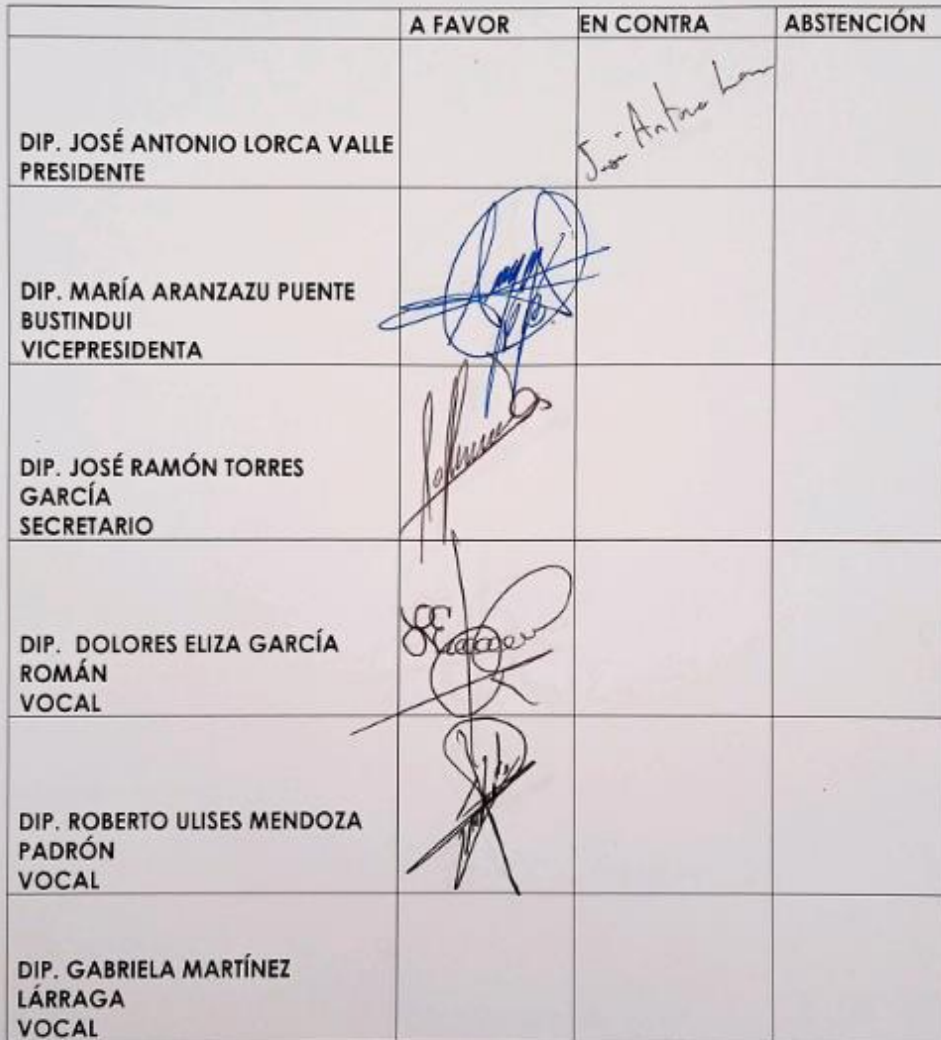 A FAVOR EN CONTRA ABSTENCIÓN
José Antonio
DIP. JOSÉ ANTONIO LORCA VALLE
PRESIDENTE
DIP. MARÍA ARANZAZU PUENTE
BUSTINDUI
VICEPRESIDENTA
DIP. JOSÉ RAMÓN TORRES
GARCÍA
SECRETARIO
DIP. DOLORES ELIZA GARCÍA
ROMÁN
VOCAL
DIP. ROBERTO ULISES MENDOZA
PADRÓN
VOCAL
DIP. GABRIELA MARTÍNEZ
LÁRRAGA
VOCAL